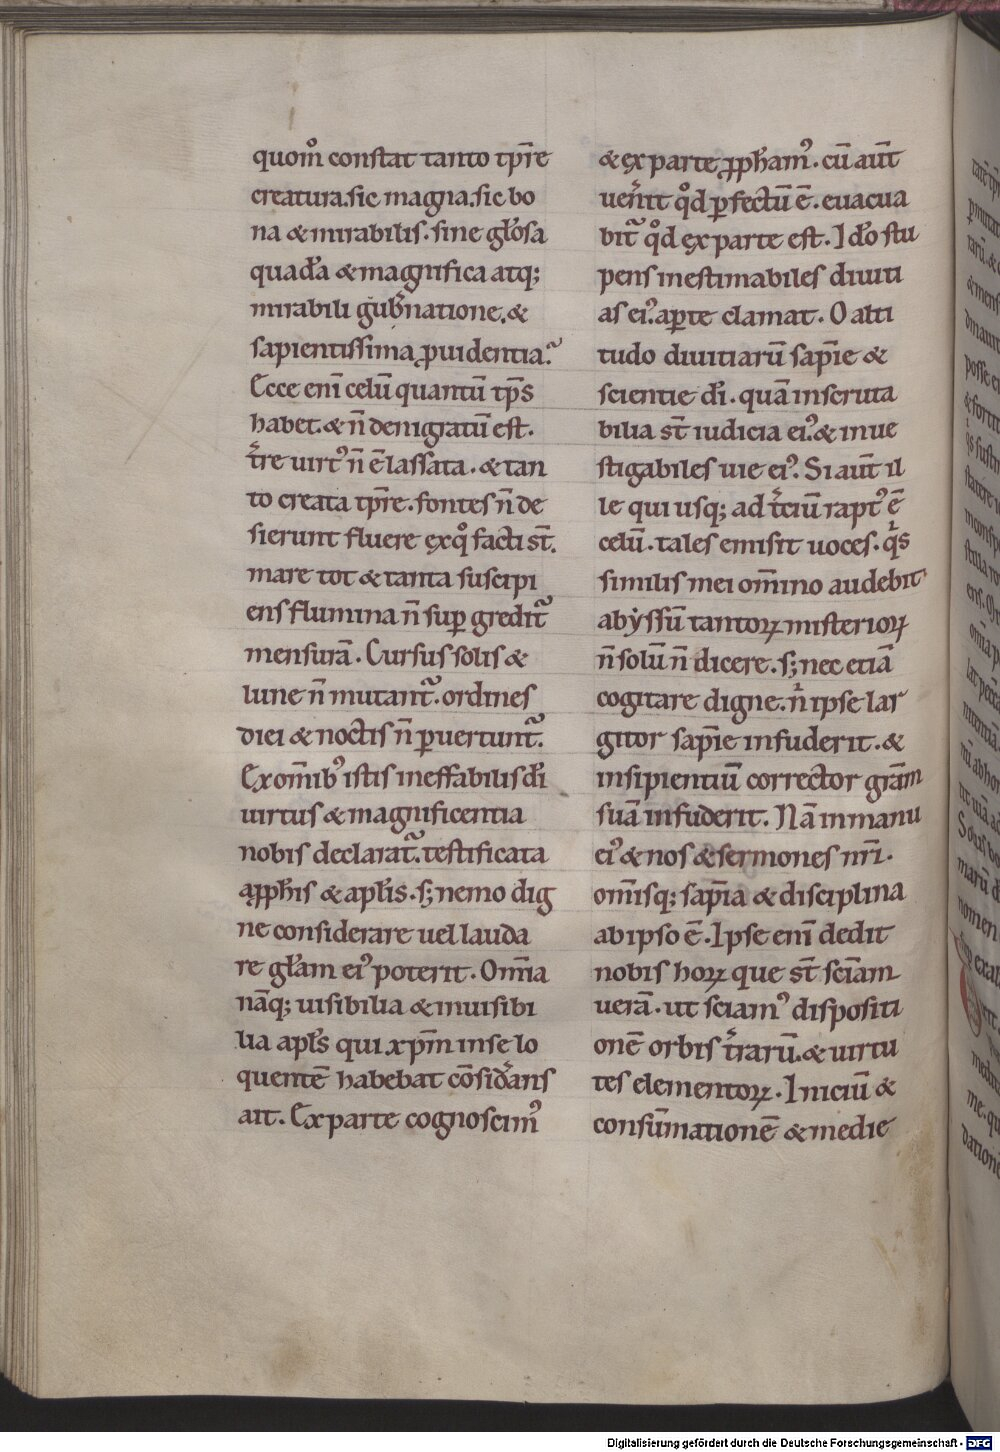 quom̊ constat tanto tp̄re
creatura. sic magna. sic bo
na & mirabilis. sine gl̄osa
quad̄a & magnifica atq;
mirabili gub̄natione. &
sapientissima ꝓuidentia.
Ecce eni̅ celū quantū tp̄s
habet. & n̄ denigratū est.
t̄re uirt᾽ n̄ ē lassata. & tan
to creata tp̄re. fontes n̄ de
sierunt fluere ex q̊ facti st̄.
mare tot & tanta suscipi
ens flumina n̄ suꝑ gredit᷑
mensurā. Cursus solis &
lune n̄ mutant᷑. ordines
diei & noctis n̄ ꝑuertunt᷑.
Ex om̄ib᾽ istis ineffabilis di̅
uirtus & magnificentia
nobis declarat᷑. testificata
a ꝓph̄is & apl̄is. s; nemo dig
ne considerare uel lauda
re gl̄am ei᾽ poterit. Om̄ia
nāq; uisibilia & inuisibi
lia apl̄s qui xp̄m in se lo
quentē habebat cōsid̄ans
ait. Ex parte cognoscim᾽
& ex parte ꝓph̄am᾽. cū aut̄
uen̄it q̊d ꝑfectū ē. euacua
bit᷑ q̊d ex parte est. Id̄o stu
pens inestimabiles diuiti
as ei᾽. aꝑte clamat. O alti
tudo diuitiarū sap̄ie &
scientie di̅. quā inscruta
bilia st̄ iudicia ei᾽. & inue
stigabiles uie ei᾽. Si aut̄ il
le qui usq; ad t̄ciū rapt᾽ ē
celū. tales emisit uoces. qͥs
similis mei om̄ino audebit
abẏssū tantoꝝ misterioꝝ
n̄ solū n̄ dicere. s; nec etiā
cogitare digne. nͥ ipse lar
gitor sap̄ie infuderit. &
insipientiū corrector gr̄am
suā infuderit. Nā in manu
ei᾽ & nos & sermones nr̄i.
om̄isq; sap̄ia & disciplina
ab ipso ē. Ipse eni̅ dedit
nobis hoꝝ que st̄ sci̅am
uerā. ut sciam᾽ dispositi
onē orbis t̄rarū. & uirtu
tes elementoꝝ. Iniciū &
consūmationē & medie
Digitalisierung gefördert durch die Deutsche Forschungsgemeinschaft - DFG